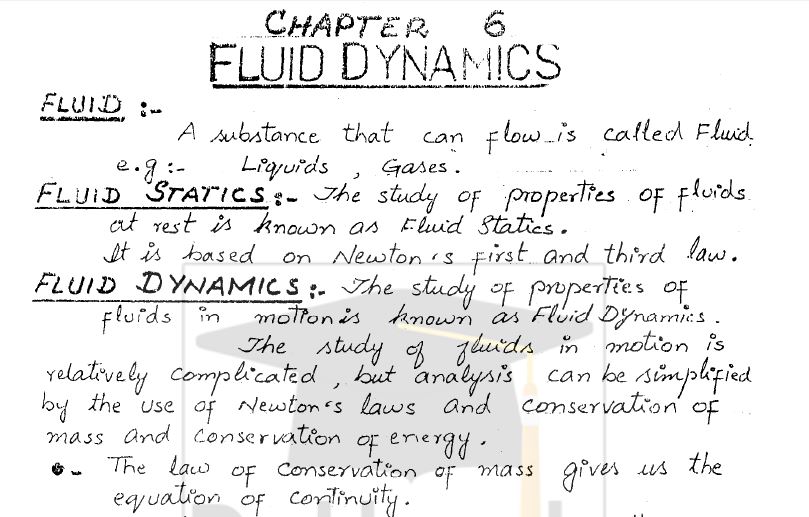 CHAPTER 6
FLUID DYNAMICS
FLUID :-
A substance that can flow is called Fluid.
e.g :- Liquids , Gases .
FLUID STATICS :- The study of properties of fluids
at rest is known as Fluid Statics .
It is based on Newton's first and third law .
FLUID DYNAMICS :- The study of properties of
fluids in motion is known as Fluid Dynamics .
The study of fluids in motion is
relatively complicated , but analysis can be simplified
by the use of Newton's laws and conservation of
mass and conservation of energy .
- The law of conservation of mass gives us the
equation of continuity .